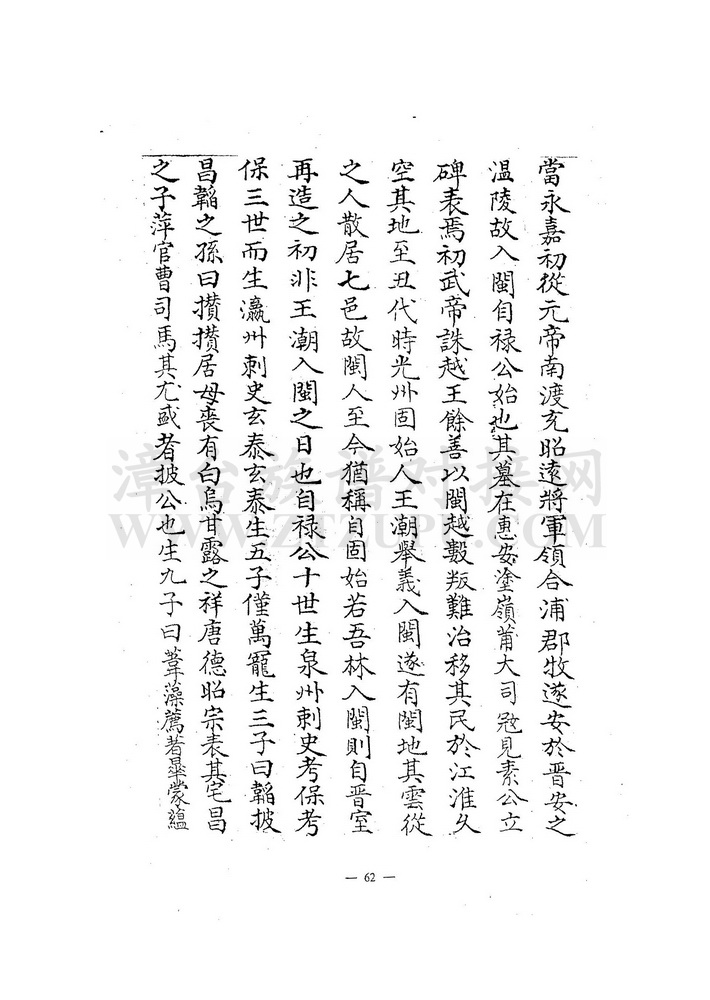 當永嘉初從元帝南渡充昭遠將軍領合浦郡牧遂安於晋安之
温陵故入閩自禄公始也其墓在惠安塗嶺莆大司冦見素公立
碑表焉初武帝誅越王餘善以閩越數叛難治移其民於江淮久
空其地至丑代時光州固始人王潮舉義入閩遂有閩地其雲從
之人散居七邑故閩人至今猶稱自固始若吾林入閩則自晋室
再造之初非王潮入閩之日也自禄公十世生泉州刺史考保考
保三世而生瀛州刺史玄泰玄泰生五子僅萬寵生三子曰韜披
昌韜之孫曰攢攢居母喪有白烏甘露之祥唐德昭宗表其宅昌
之子萍官曹司馬其尤盛者披公也生九子曰葦藻薦著曅蒙蕴
— 62 —
漳台族谱对接网
WWW.ZTZUPU.COM